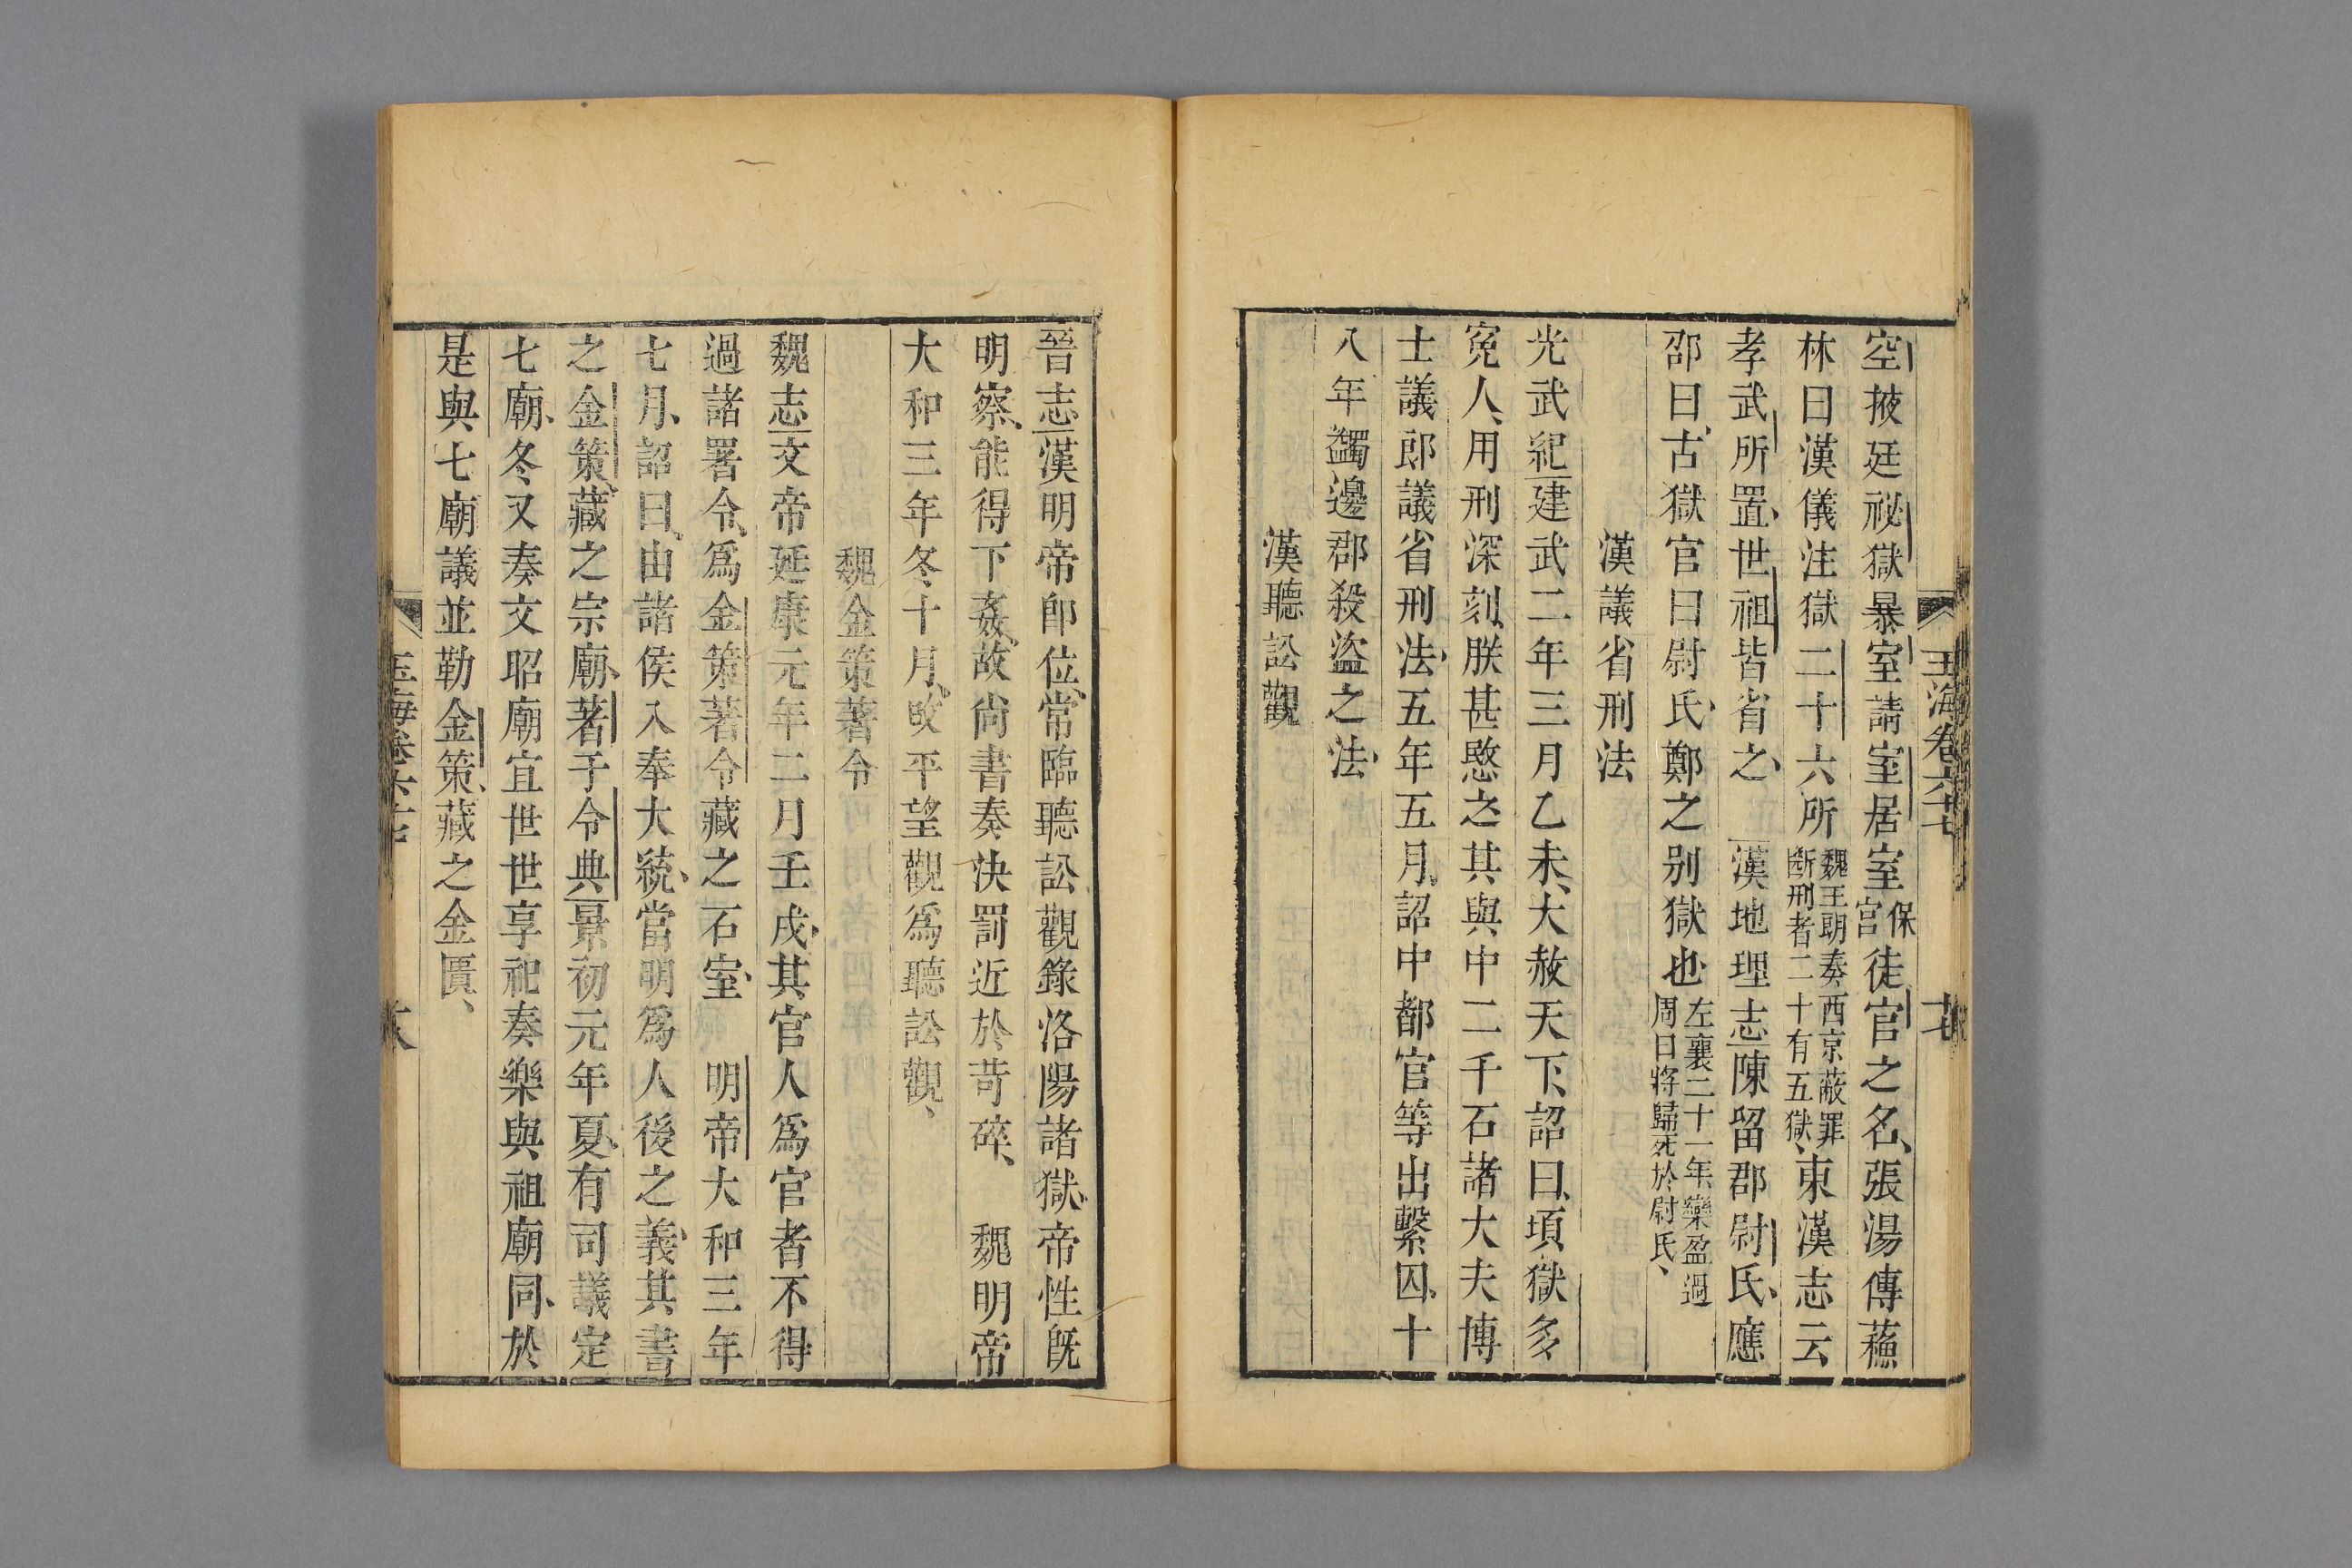 玉海卷六十七 十七
空掖廷祕獄暴室請室居室保宮徒官之名、張湯傳蘇
林曰漢儀注獄二十六所魏王朗奏西京蔽罪斷刑者二十有五獄、東漢志云
孝武所置、世祖皆省之、 漢地理志陳留郡尉氏、應
邵曰、古獄官曰尉氏、鄭之别獄也左襄二十一年、欒盈過周曰將歸死於尉氏、
漢議省刑法
光武紀建武二年三月乙未、大赦天下、詔曰、頃獄多
冤人、用刑深刻、朕甚愍之其與中二千石諸大夫博
士議郎議省刑法、五年五月、詔中都官等出繫囚、十
八年蠲邊郡殺盜之法、
漢聽訟觀
晉志漢明帝卽位、常臨聽訟觀錄洛陽諸獄、帝性旣
明察、能得下姦、故尚書奏決罰近於苛碎、 魏明帝
大和三年冬十月、改平望觀爲聽訟觀、
魏金策著令
魏志文帝延康元年二月壬戌、其官人爲官者不得
過諸署令、爲金策著令藏之石室、 明帝大和三年
七月、詔曰、由諸侯入奉大統、當明爲人後之義、其書
之金策、藏之宗廟、著于令典景初元年夏、有司議定
七廟、冬又奏文昭廟宜世世享祀奏樂與祖廟同、於
是與七廟議並勒金策、藏之金匱、
玉海卷六十七